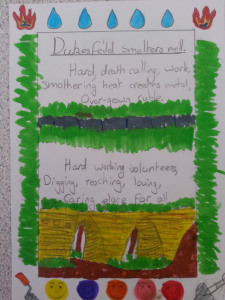 Dukesfield smelters mill.
Hard, death calling, work,
Smothering heat creates metal,
Over-grown rubble.
Hard working volunteers,
Digging, reaching, loving,
Caring place for all